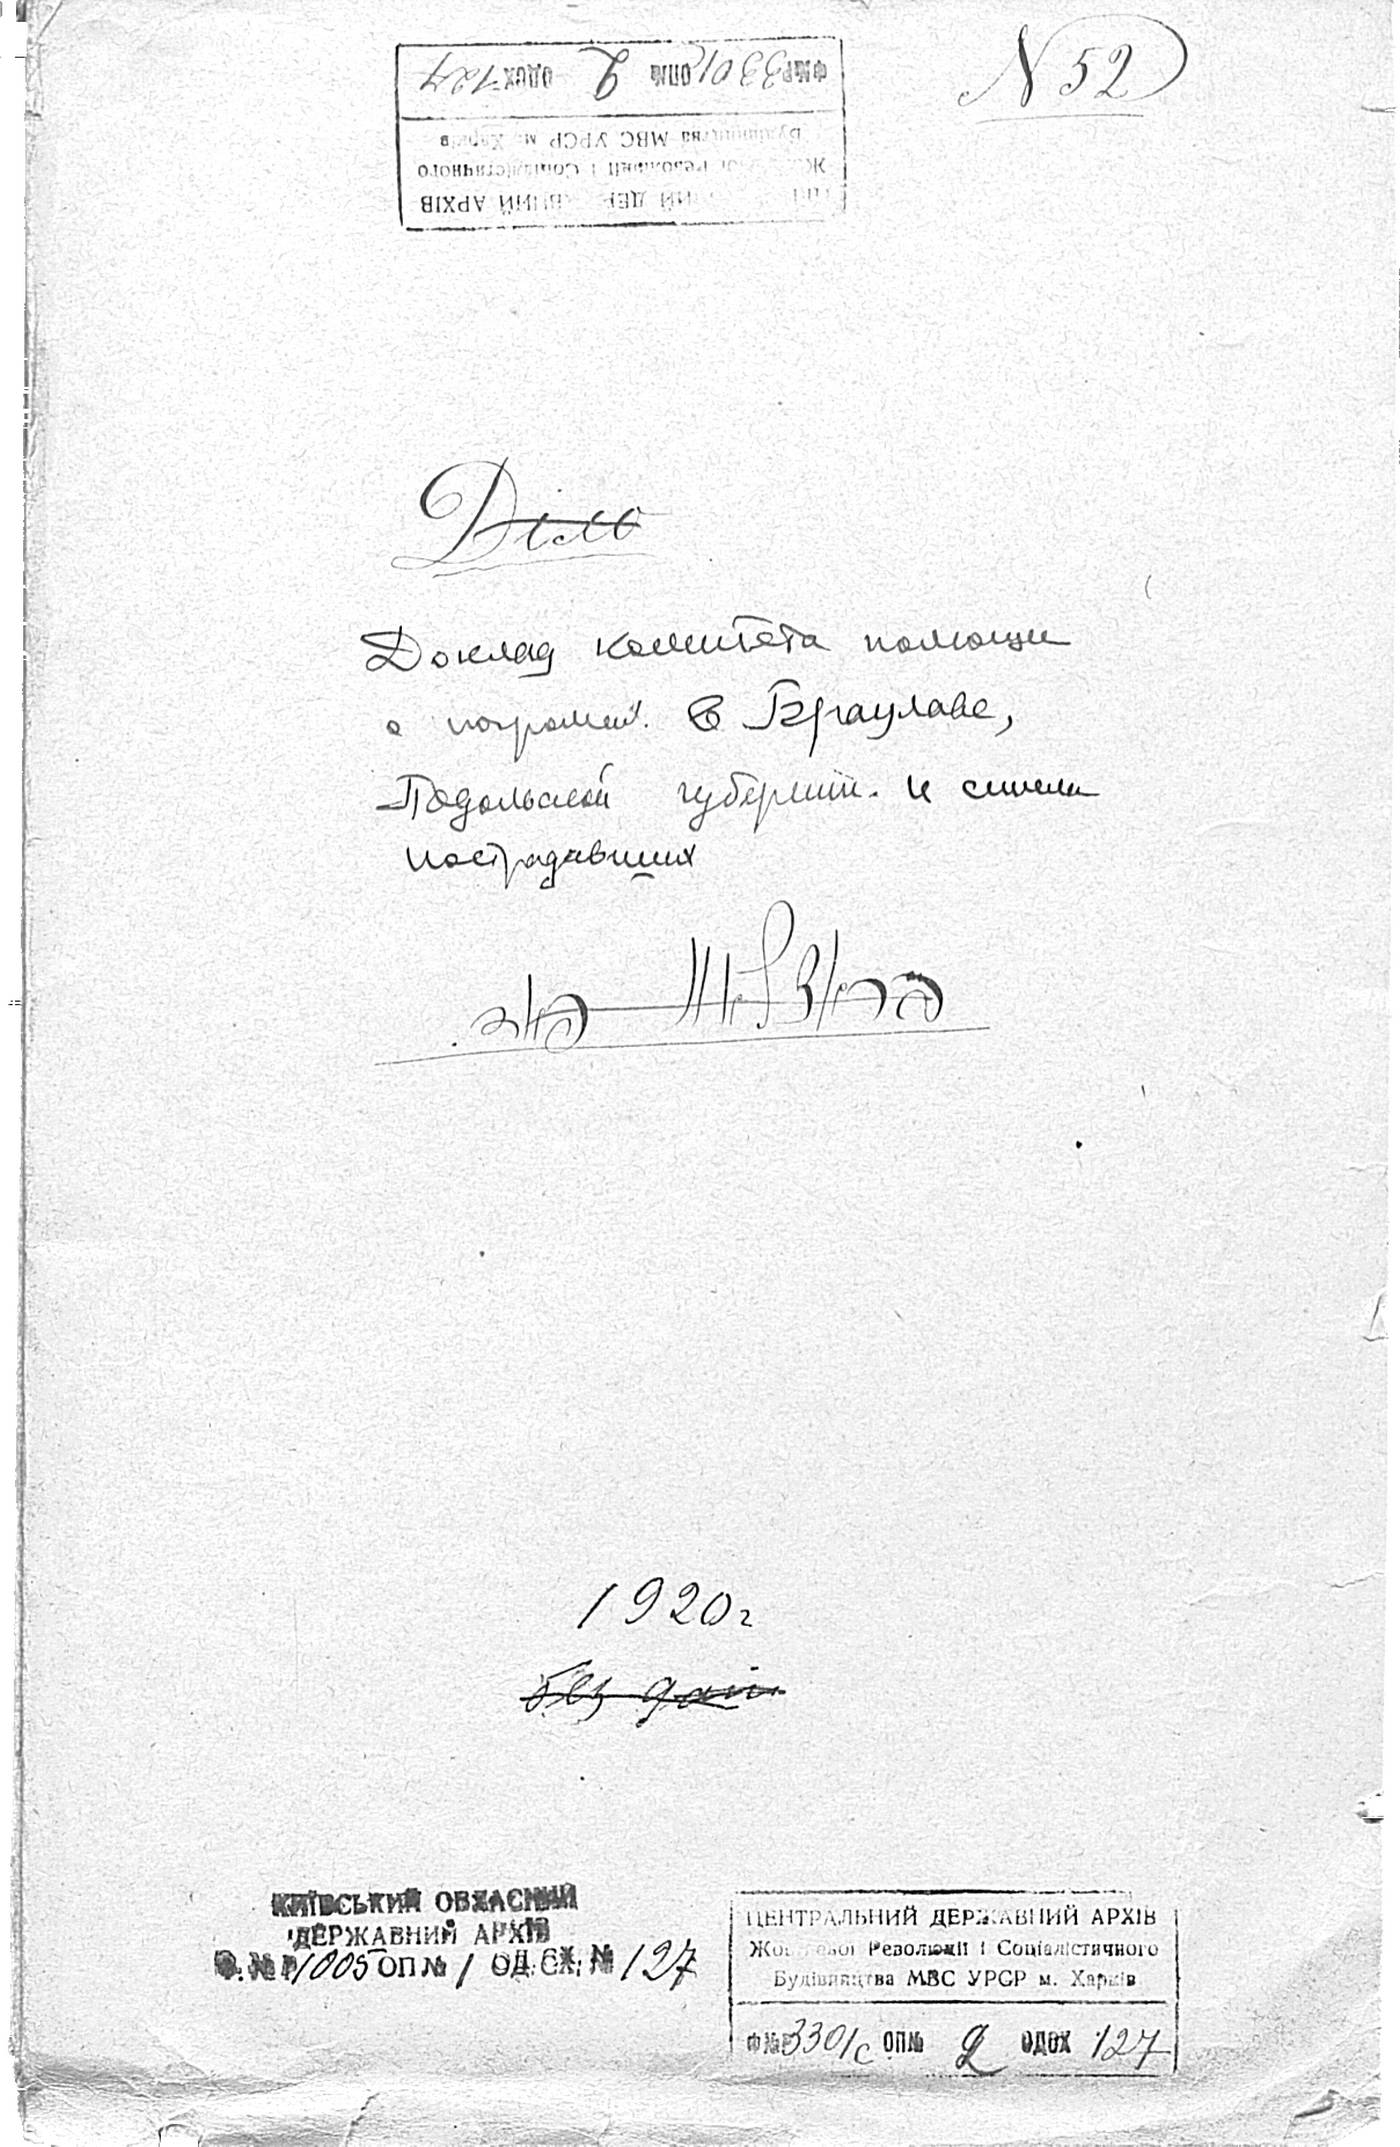 N 52
ФМР 3301/с ОПМ 2 ОДОХ 127
Будівництва МВС УРСР м. Харків
Жовтневої Революції і Соціалістичного
ЦЕНТРАЛЬНИЙ ДЕРЖАВНИЙ АРХІВ
Діло
Доклад комитета помощи
о погроме в Браулаве,
Подольской губернии и списки
пострадавших
1920 г
без дати
КИЇВСЬКИЙ ОБЛАСНИЙ
ДЕРЖАВНИЙ АРХІВ
Ф. № Р 1005 ОП № 1 ОД. СХ. № 127
ЦЕНТРАЛЬНИЙ ДЕРЖАВНИЙ АРХІВ
Жовтневої Революції і Соціалістичного
Будівництва МВС УРСР м. Харків
Ф№Р 3301/с ОП№ 2 ОДОХ 127